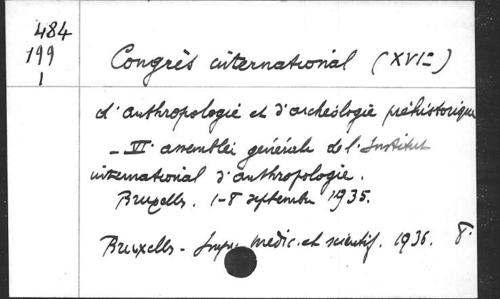 484
199
1
Congrès international (XVIe)
d'anthropologie et d'archéologie préhistorique
- VIe assemblée générale de l'Institut
international d'anthropologie.
Bruxelles. 1-8 septembre 1935.
Bruxelles - Impr. médic. et scientif. 1936. 8°.